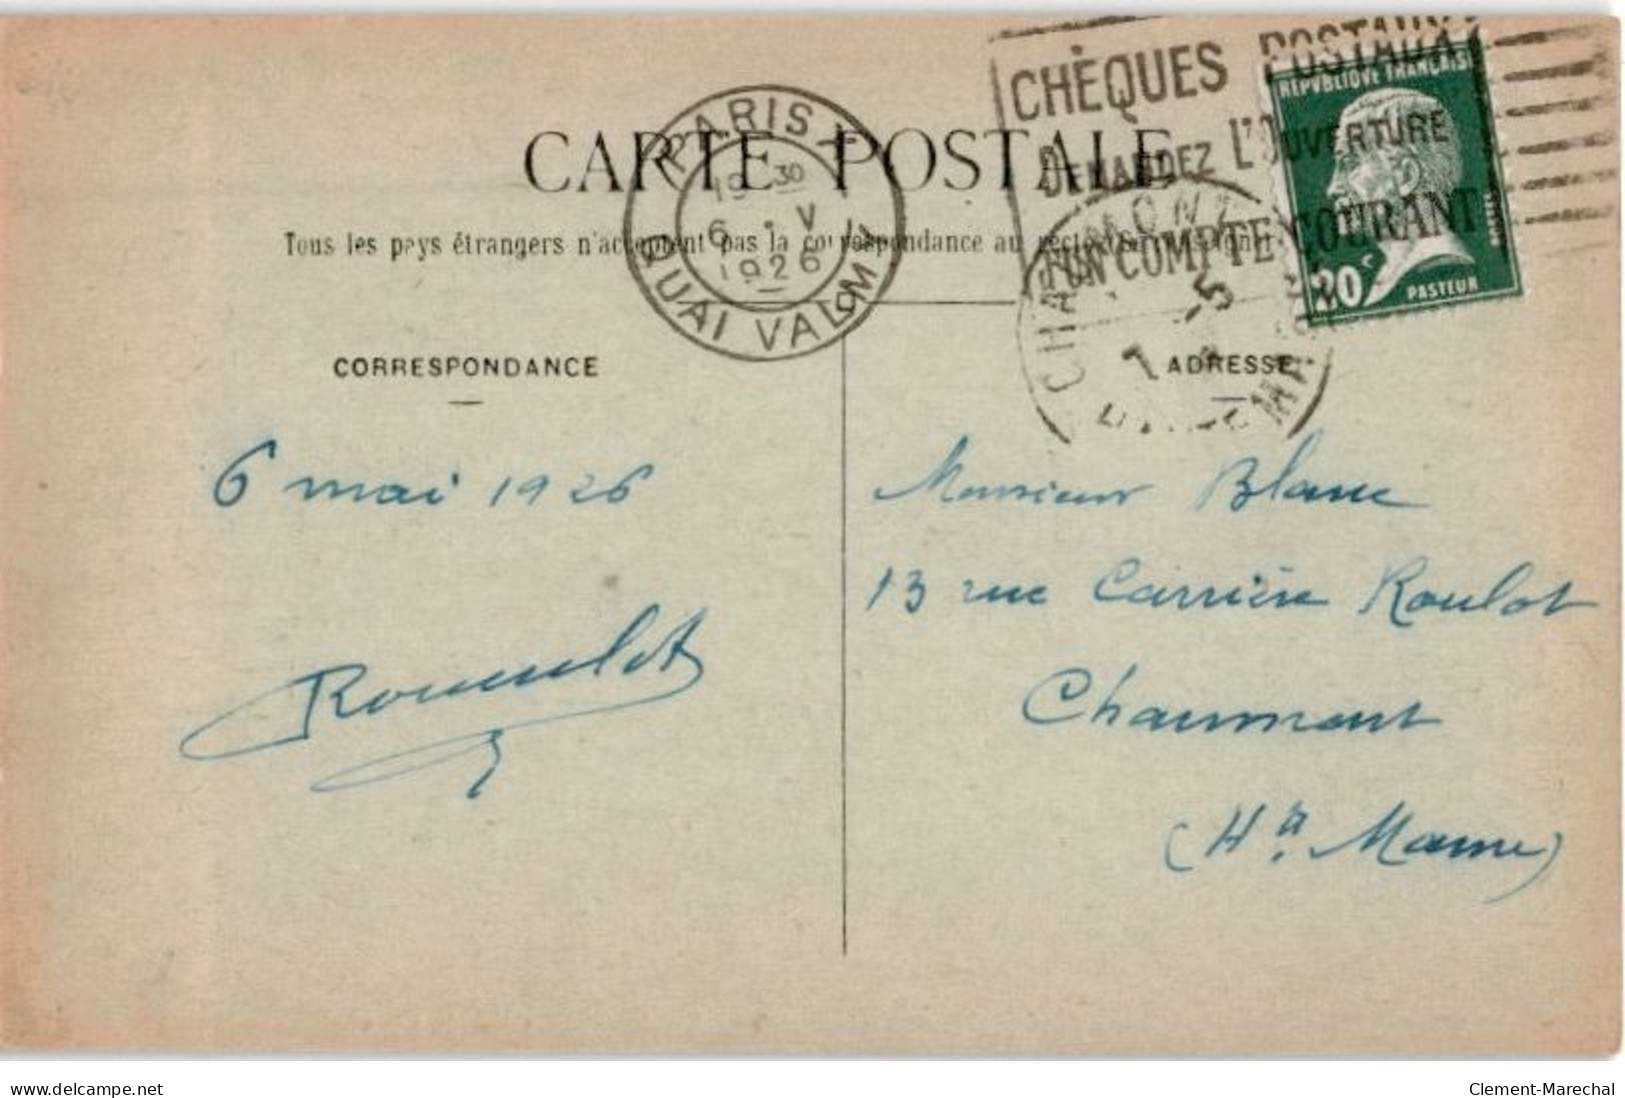 CHÈQUES POSTAUX
DEMANDEZ L'OUVERTURE
D'UN COMPTE COURANT
REPVBLIQVE FRANÇAISE
20c
PASTEUR
PARIS X
19 30
6 · V
1926
QUAI VALMY
CARTE POSTALE
Tous les pays étrangers n'acceptent pas la correspondance au
CHAUMONT
7 -5
CORRESPONDANCE
ADRESSE
6 mai 1926
Monsieur Blanc
13 rue Carrière Roulot
Chaumont
(Hte Marne)
www.delcampe.net
Clement-Marechal